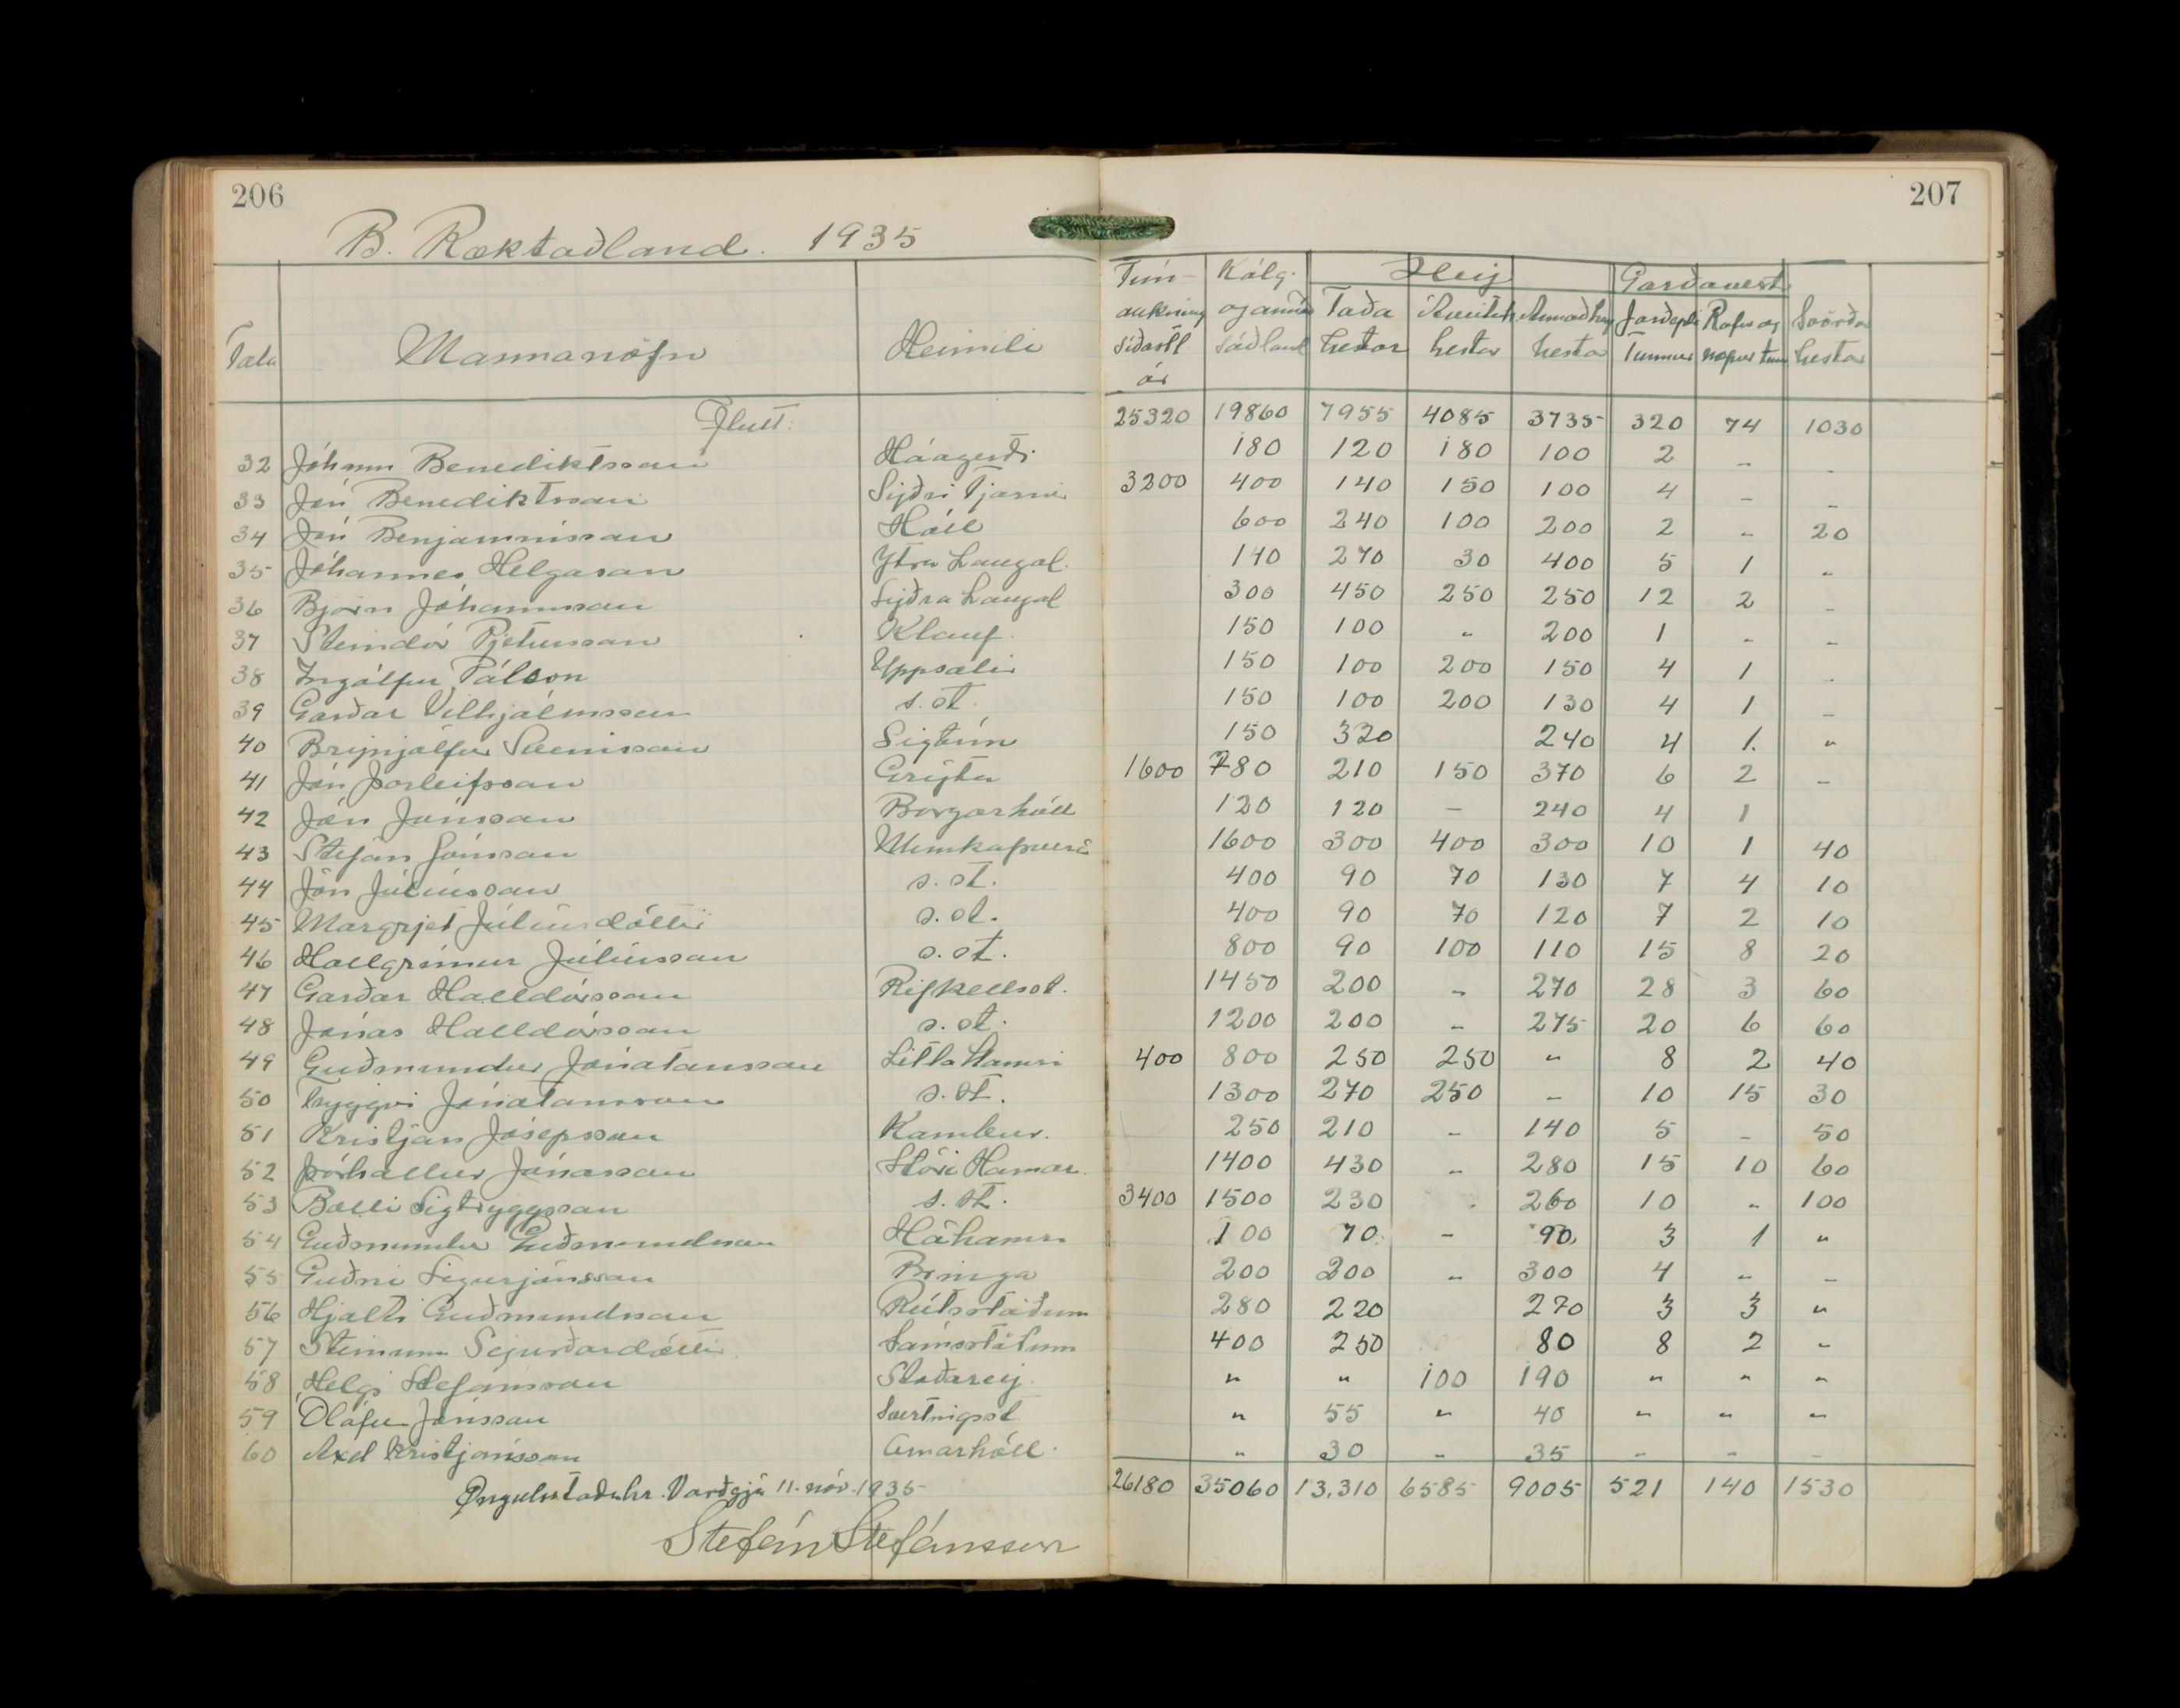 206
207
B. Ræktaðland. 1935
Tala Mannanöfn Heimili Tún- aukning síðastl ár Kálg. og annað sáðland Hey Taða hestar hestar hestar Garðávext Jarðepli Tunnur Rófur og næpur tun hestar
Flutt: 25320 19860 7955 4085 3735 320 74 1030
32 Jóhann Benediktsson Háagerði 180 120 180 100 2 - -
33 Jón Benediktsson Syðri Tjarnir 3200 400 140 150 100 4 - -
34 Jón Benjamínsson Hóll 600 240 100 200 2 - 20
35 Jóhannes Helgason Ytra Laugal. 140 270 30 400 5 1 -
36 Björn Jóhannsson Syðra Laugal 300 450 250 250 12 2 -
37 Steindór Pjetursson Klauf. 150 100 " 200 1 - -
38 Ingólfur Pálsson Uppsalir 150 100 200 150 4 1 -
39 Garðar Vilhjálmsson s. st. 150 100 200 130 4 1 -
40 Brynjólfur Sveinsson Sigtún 150 320 240 4 1. "
41 Jón Þorleifsson Grýta 1600 780 210 150 370 6 2 -
42 Jón Jónsson Borgarhóll 120 120 - 240 4 1
43 Stefán Jónsson Munkaþverá 1600 300 400 300 10 1 40
44 Jón Júlíusson s. st. 400 90 70 130 7 4 10
45 Margrjet Júlíusdóttir s. st. 400 90 70 120 7 2 10
46 Hallgrímur Júlíusson s. st. 800 90 100 110 15 8 20
47 Garðar Halldórsson Rifkellsst. 1450 200 - 270 28 3 60
48 Jónas Halldórsson s. st. 1200 200 - 275 20 6 60
49 Guðmundur Jónatansson Litla Hamri 400 800 250 250 " 8 2 40
50 Tryggvi Jónatansson s. st. 1300 270 250 - 10 15 30
51 Kristján Jósepsson Kambur. 250 210 - 140 5 - 50
52 Þórhallur Jónasson Stóri Hamar. 1400 430 - 280 15 10 60
53 Balli Sigtryggsson s. st. 3400 1500 230 260 10 " 100
54 Guðmundur Guðmundsson Háhamri 100 70 - 90 3 1 "
55 Guðni Sigurjónsson Bringa 200 200 - 300 4 - -
56 Hjalti Guðmundsson Rútsstöðum 280 220 270 3 3 "
57 Steinunn Sigurðardóttir Sámsstöðum 400 250 80 8 2 -
58 Helgi Stefánsson Staðarey. " " 100 190 " " "
59 Ólafur Jónsson 55 " 40 " " "
60 Axel Kristjánsson Arnarhóll. " 30 - 35 - - -
Öngulsstaðahr. Varðgjá 11. nóv. 1935 26180 35060 13.310 6585 9005 521 140 1530
Stefán Stefánsson